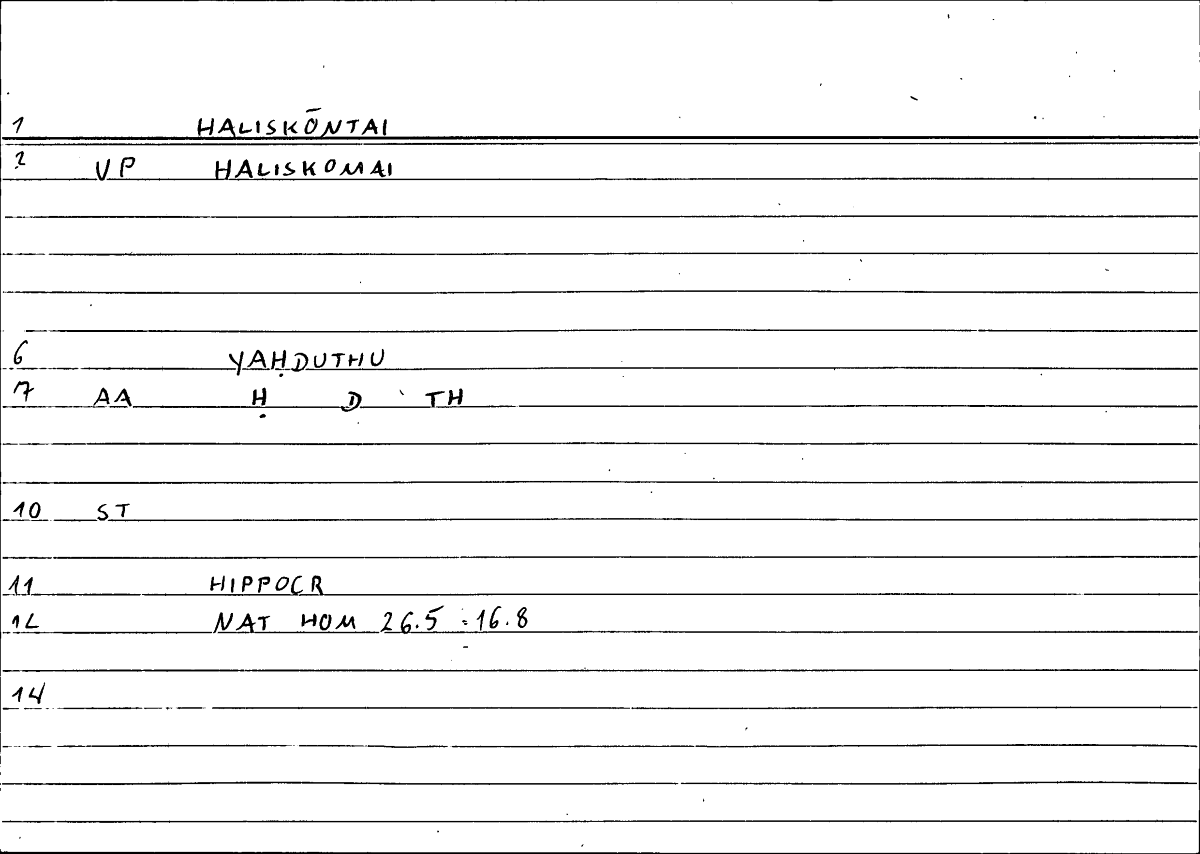 1 HALISKŌNTAI
2 VP HALISKOMAI
6 YAḤDUTHU
7 AA Ḥ D TH
10 ST
11 HIPPOCR
12 NAT HOM 26.5 = 16.8
14